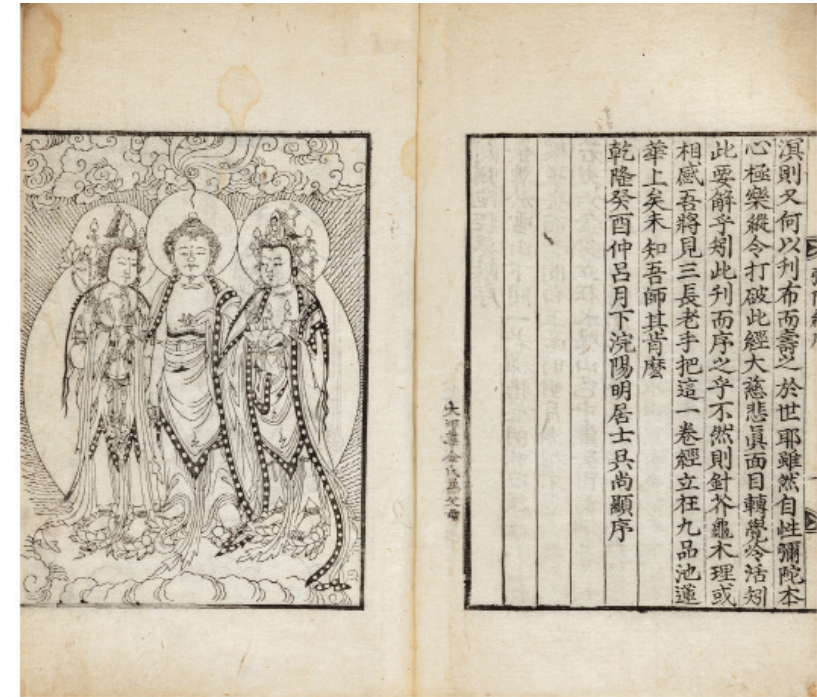 彌陀經序
溟則又何以刋布而壽之於世耶雖然自性彌陀本
心極樂縱令打破此經大慈悲眞面目轉覺冷活矧
此要解乎矧此刋而序之乎不然則針芥龜木理或
相感吾將見三長老手把這一卷經立在九品池蓮
華上矣未知吾師其肯麽
乾隆癸酉仲呂月下浣陽明居士具尚顯序
金氏
父母